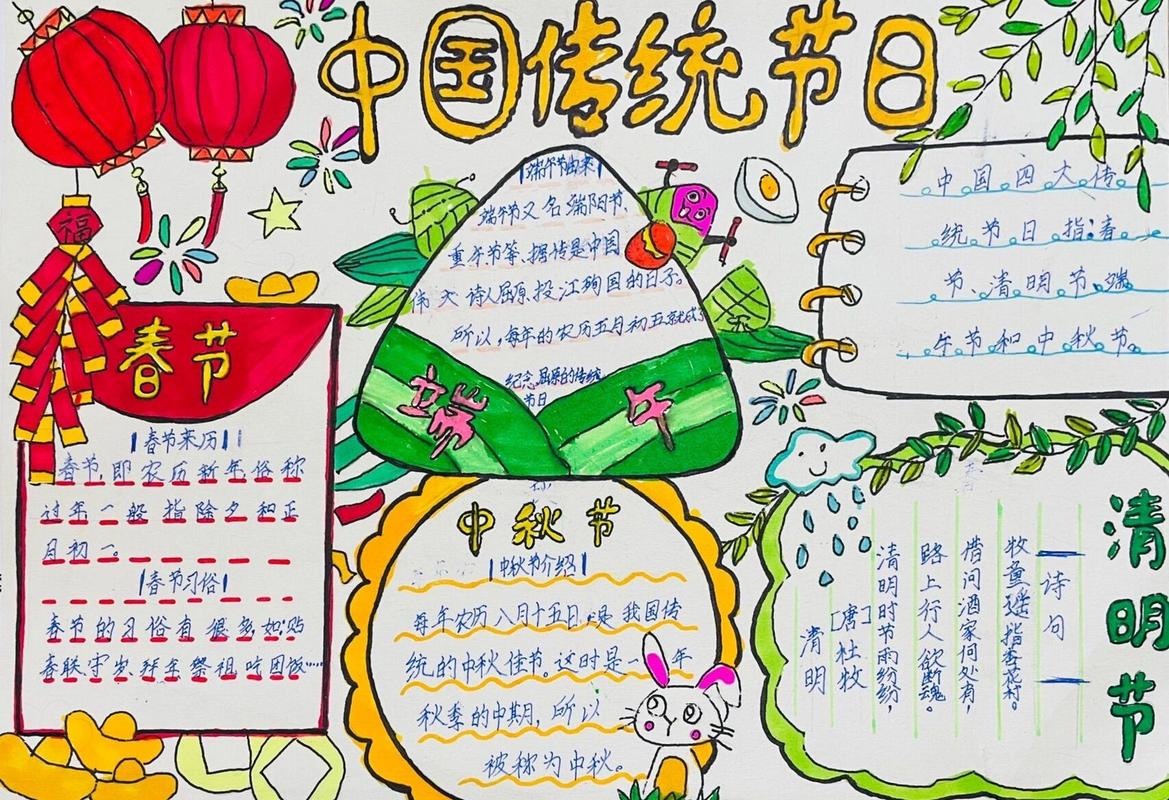 中国传统节日
福
春节
春节来历
春节,即农历新年,俗称
过年一般指除夕和正
月初一。
春节习俗
春节的习俗有很多,如:贴
春联、守岁、拜年祭祖、吃团饭……
端午节由来
端午节又名端阳节、
重午节等、据传是中国
伟大诗人屈原投江殉国的日子。
所以,每年的农历五月初五就成
纪念屈原的传统
节日
端午
中秋节
中秋节介绍
每年农历八月十五日,是我国传
统的中秋佳节。这时是一年
秋季的中期,所以
被称为中秋。
中国四大传
统节日指:春
节、清明节、端
午节和中秋节。
清明节
诗句
清明
[唐]杜牧
清明时节雨纷纷,
路上行人欲断魂。
借问酒家何处有,
牧童遥指杏花村。